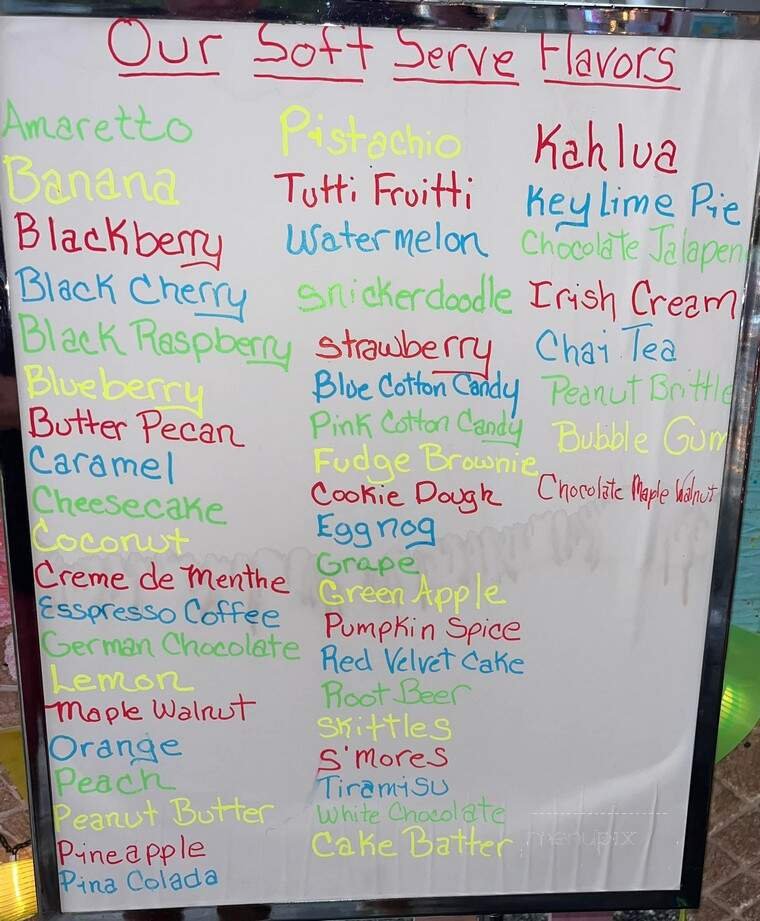 Our Soft Serve Flavors
Amaretto
Banana
Blackberry
Black Cherry
Black Raspberry
Blueberry
Butter Pecan
Caramel
Cheesecake
Coconut
Creme de Menthe
Esspresso Coffee
German Chocolate
Lemon
Maple Walnut
Orange
Peach
Peanut Butter
Pineapple
Pina Colada
Pistachio
Tutti Fruitti
Watermelon
Snickerdoodle
Strawberry
Blue Cotton Candy
Pink Cotton Candy
Fudge Brownie
Cookie Dough
Eggnog
Grape
Green Apple
Pumpkin Spice
Red Velvet Cake
Root Beer
Skittles
S'mores
Tiramisu
White Chocolate
Cake Batter
Kahlua
Key Lime Pie
Chocolate Jalapen
Irish Cream
Chai Tea
Peanut Brittle
Bubble Gum
Chocolate Maple Walnut
menupix